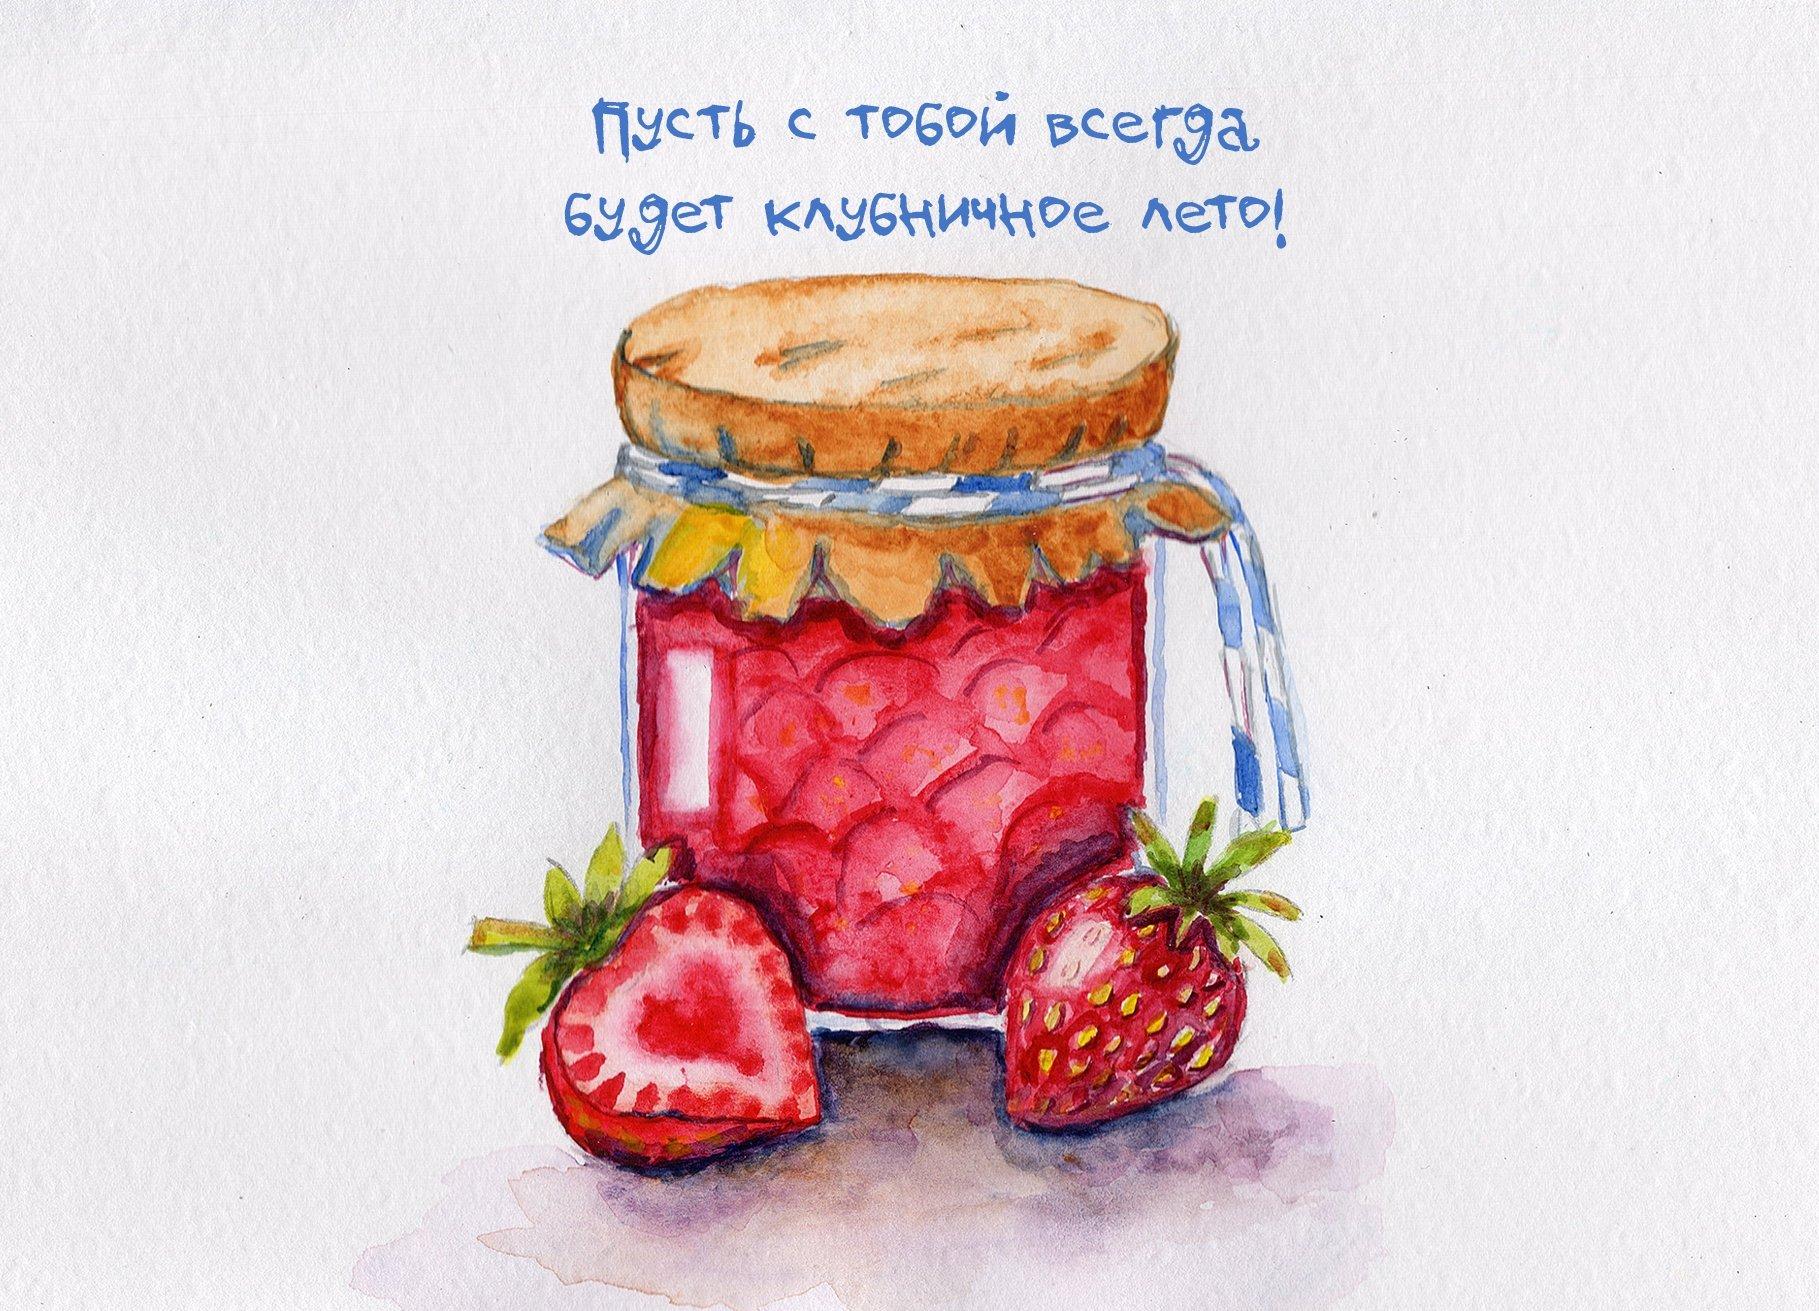 Пусть с тобой всегда
будет клубничное лето!